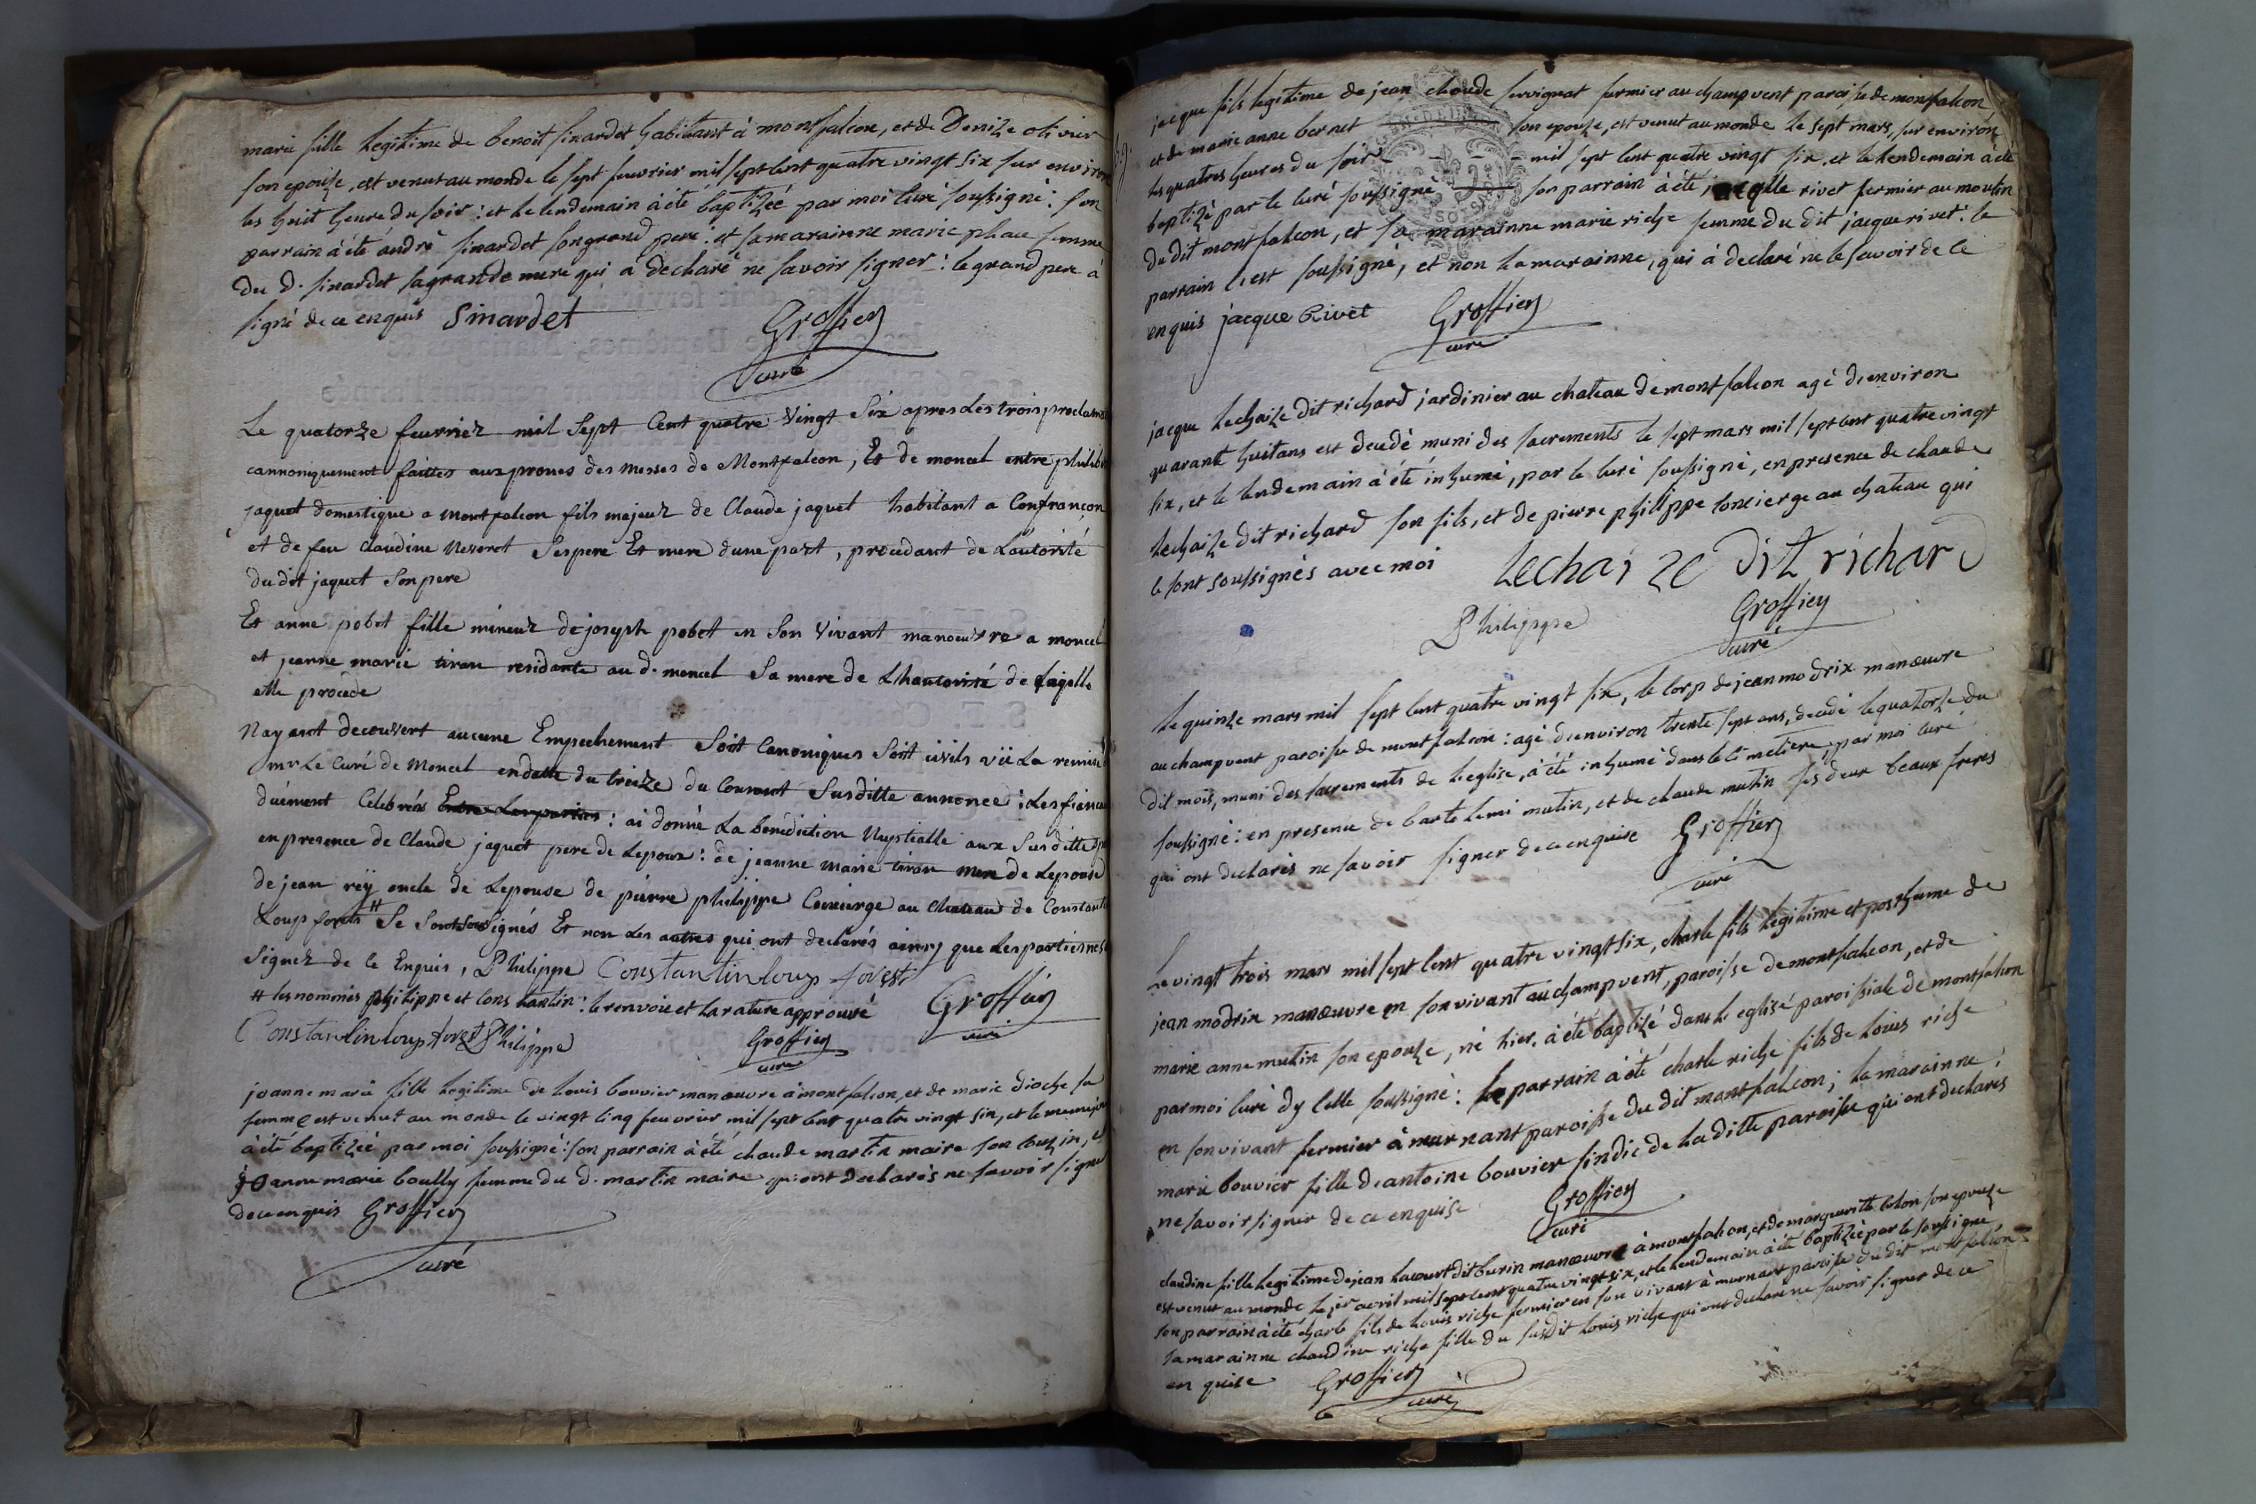 marie fille legitime de benoit sinardet habitant à montfalcon, et de Denize olivier
son epouse, est venut au monde le sept feuvrier mil sept cent quatre vingt six sur environ
les huit heure du soir : et le lendemain à été baptizéé par moi curé soussigné : son
parrain à été andré sinardet son grand pere : et sa marainne marie place femme
du d. sinardet sa grande mere qui à declaré ne savoir signer : le grand pere à
signé de ce enquis Sinardet Groffier
curé
Le quatorze feuvriez mil sept Cent quatre vingt Six apres Les trois proclama
cannoniquement faittes aux prones des messes de Montfalcon, Et de moncel entre philib
jaquet domestique a montfalcon fils majeur de Claude jaquet habitant a Confrancon
et de feu Claudine Ses pere Et mere dune part, procedant de Lautorité
du dit jaquet Son pere
Et anne pobet fille mineur de joseph pobet en Son vivant manoeuvre a moncel
et jeanne marie tiran residante au d. moncel Sa mere de Lhautorité de Laqelle
elle procede
Nayant decouvert aucune Empechement Soit Canoniques Soit civils vû La remise
mr Le Curé de Moncel en datte du treize du Courant Susditte annonce : Les fianca
duëment Celebréés Entre Les parties : ai donné La benediction Nuptialle aux Susditte
en presence de Claude jaquet pere de Lepoux : de jeanne marie tiran mere de Lepouse
de jean reÿ oncle de Lepouse de pierre philippe Concierge au Chateau de Constantin
Loup forêst # Se Sont Sousignés Et non Les autres qui ont declarés ainsy que Les parties ne
Signer de Ce Enquis, Philippe Constantin loup forest
# les nommés philippe et constantin : le renvoie et la rature approuvé Groffier
curé
Constantin loup forest Philippe Groffier
curé
joanne marie fille legitime de louis bouvier manœuvre à montfalcon, et de marie dioche sa
femme est venut au monde le vingt cinq feuvrier mil sept cent quatre vingt six, et le meme jour
à été baptizéé par moi soussigné : son parrain à été claude martin maire son cousin, et
joanne marie boully femme du d. martin maire qui ont declarés ne savoir signer
de ce enquis Groffier
curé
jacque fils legitime de jean claude servignat fermier au champ vent paroisse de montfalcon
et de marie anne bernet son epouse, est venut au monde le sept mars, sur environ
les quatres heures du soir mil sept cent quatre vingt six, et le lendemain à été
baptizé par le curé soussigné son parrain à été jacque rivet fermier au moulin
du dit montfalcon, et sa marainne marie riche femme du dit jacque rivet : le
parrain c'est soussigné, et non la marainne, qui à declaré ne le savoir de ce
enquis jacque Rivet Groffier
curé
jacque lechaize dit richard jardinier au chateau de montfalcon agé d'environ
quarante huit ans est decedé muni des sacrements le sept mars mil sept cent quatre vingt
six, et le lendemain à été inhumé, par le curé soussigné, en presence de claude
lechaize dit richard son fils, et de pierre philippe concierge au chateau qui
ce sont soussignés avec moi Lechaize dit richard
Philippe Groffier
curé
Le quinze mars mil sept cent quatre vingt six, le corp de jean modrix manœuvre
au champ vent paroisse de montfalcon : agé d'environ trente sept ans, decedé le quatorze du
dit mois, muni des sacrements de l'eglise, à été inhumé dans le cimetiere, par moi curé
soussigné : en presence de bartelemi mutin, et de claude mutin ses deux beaux freres
qui ont declarés ne savoir signer de ce enquise Groffier
curé
Le vingt trois mars mil sept cent quatre vingt six, charle fils legitime et posthume de
jean modrix manœuvre en son vivant au champ vent, paroisse de montfalcon, et de
marie anne mutin son epouse, né hier, à été baptizé dans l'eglise paroissiale de montfalcon
par moi curé d'y celle soussigné : le parrain à été charle riche fils de louis riche
en son vivant fermier à murnant paroisse du dit montfalcon ; la marainne,
marie bouvier fille d'antoine bouvier sindic de la ditte paroisse qui ont declarés
ne savoir signer de ce enquise Groffier
curé
claudine fille legitime de jean lacourt dit burin manœuvre à montfalcon, et de marguerite colon son epouse
est venut au monde le 1er avril mil sept cent quatre vingt six, et le lendemain à été baptizéé par le soussigné
son parrain à été charle fils de louis riche fermier en son vivant à murnant paroisse du dit montfalcon
la marainne claudine riche fille du susdit louis riche qui ont declaré ne savoir signer de ce
enquise Groffier
curé